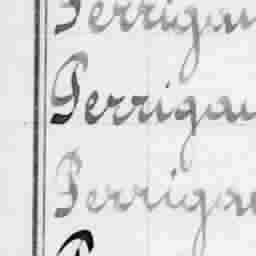 Perrigau
Perrigau
Perrigau